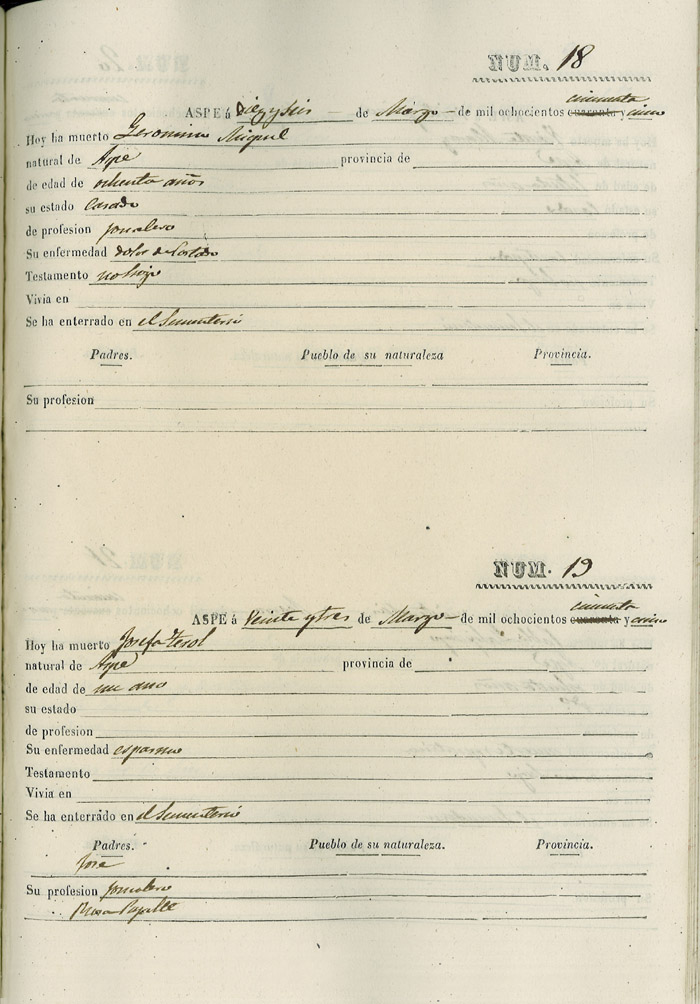 NUM. 18
cincuenta
ASPE á Diez y seis de Marzo de mil ochocientos cuarenta y cinco
Hoy ha muerto Geronimo Miguel
natural de Aspe provincia de
de edad de ochenta años
su estado Casado
de profesion jornalero
Su enfermedad dolor de Costado
Testamento no hizo
Vivia en
Se ha enterrado en el Sementerio
Padres. Pueblo de su naturaleza Provincia.
Su profesion
NUM. 19
cincuenta
ASPE á Veinte y tres de Marzo de mil ochocientos cuarenta y cinco
Hoy ha muerto Josefa Terol
natural de Aspe provincia de
de edad de un año
su estado
de profesion
Su enfermedad espasmo
Testamento
Vivia en
Se ha enterrado en el Sementerio
Padres. Pueblo de su naturaleza. Provincia.
Jose
Su profesion jornalero
Rosa